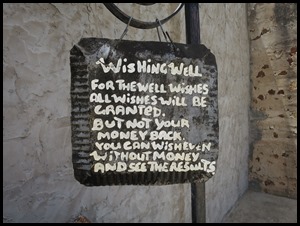 WISHING WELL
FOR THE WELL WISHES
ALL WISHES WILL BE
GRANTED.
BUT NOT YOUR
MONEY BACK.
YOU CAN WISH EVEN
WITHOUT MONEY
AND SEE THE RESULTS